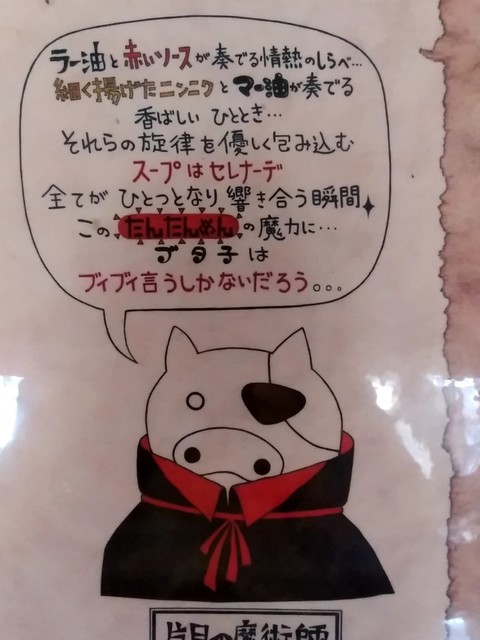 ラー油と赤いソースが奏でる情熱のしらべ…
細く揚げたニンニクとマー油が奏でる
香ばしい ひととき…
それらの旋律を優しく包み込む
スープはセレナーデ
全てが ひとつとなり 響き合う瞬間
このたんたんめんの魔力に…
ブタ子は
ブィブィ言うしかないだろう。。。
片目の魔術師